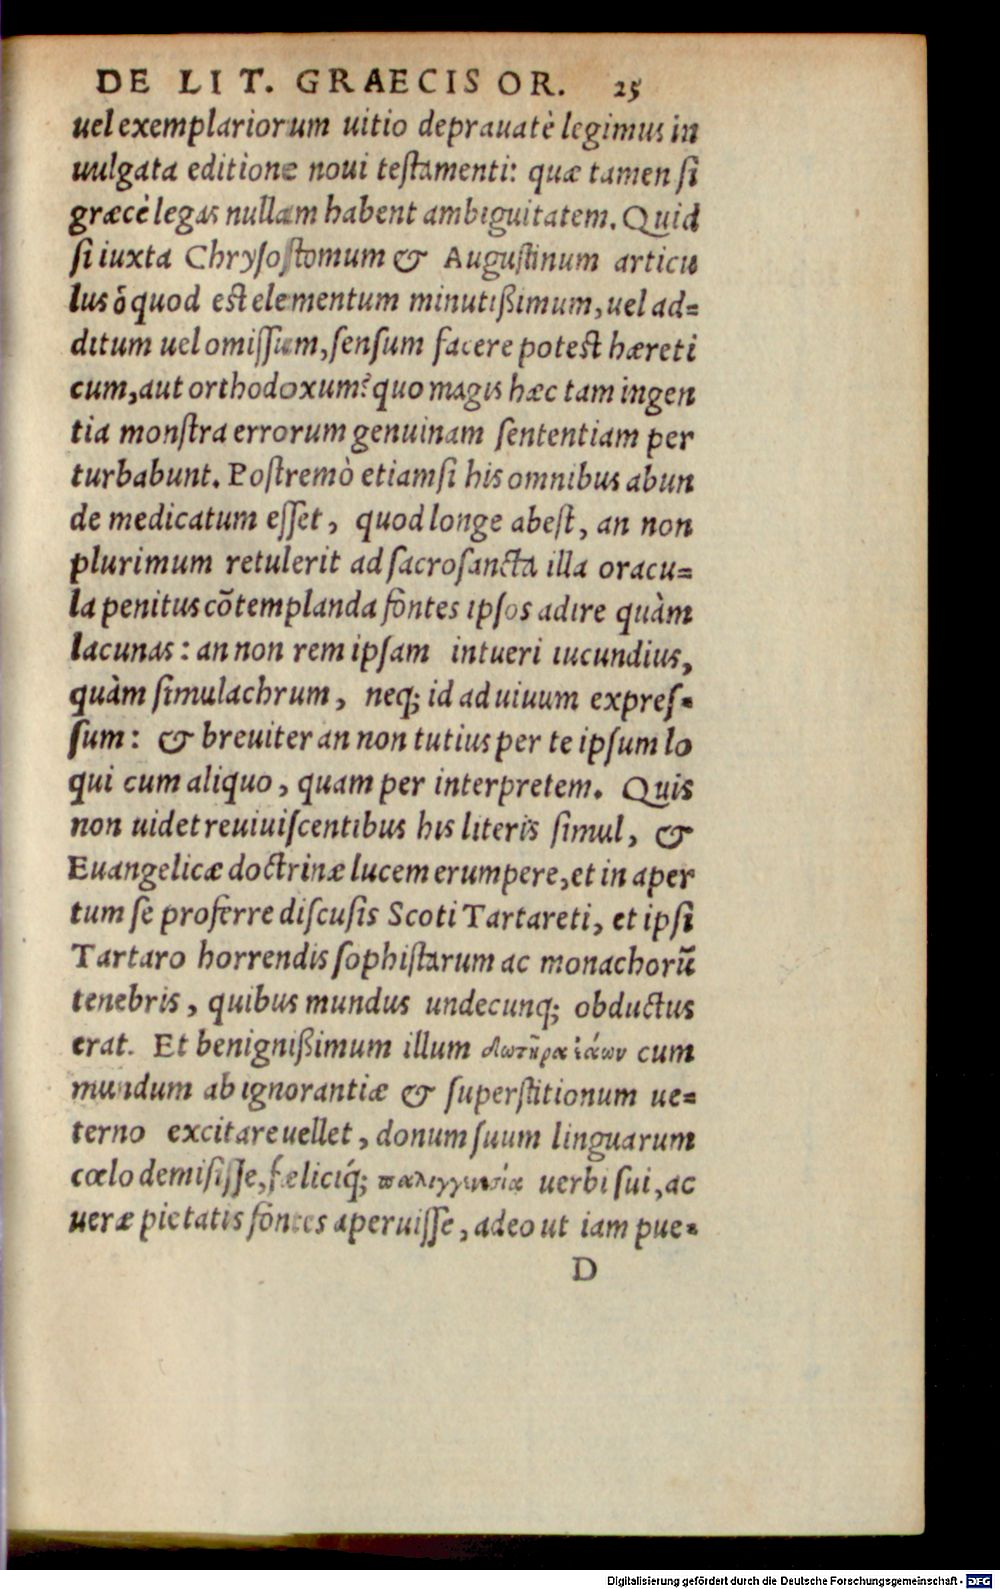 DE LIT. GRAECIS OR. 25
uel exemplariorum uitio deprauatè legimus in
uulgata editione noui teſtamenti: quæ tamen ſi
græcè legas nullam habent ambiguitatem. Quid
ſi iuxta Chryſoſtomum & Auguſtinum articu
lus ὁ quod eſt elementum minutißimum, uel ad=
ditum uel omiſſum, ſenſum facere poteſt hæreti
cum, aut orthodoxum? quo magis hæc tam ingen
tia monſtra errorum genuinam ſententiam per
turbabunt. Poſtremò etiamſi his omnibus abun
de medicatum eſſet, quod longe abeſt, an non
plurimum retulerit ad ſacroſancta illa oracu=
la penitus cōtemplanda fontes ipſos adire quàm
lacunas: an non rem ipſam intueri iucundius,
quàm ſimulachrum, neq; id ad uiuum expreſ=
ſum: & breuiter an non tutius per te ipſum lo
qui cum aliquo, quam per interpretem. Quis
non uidet reuiuiſcentibus his literis ſimul, &
Euangelicæ doctrinæ lucem erumpere, et in aper
tum ſe proferre diſcuſis Scoti Tartareti, et ipſi
Tartaro horrendis ſophiſtarum ac monachorū
tenebris, quibus mundus undecunq; obductus
erat. Et benignißimum illum σωτῆρα cum
mundum ab ignorantiæ & ſuperſtitionum ue=
terno excitare uellet, donum ſuum linguarum
cœlo demiſiſſe, fæliciq́; παλιγγενεσίᾳ uerbi ſui, ac
ueræ pietatis fontes aperuiſſe, adeo ut iam pue=
D
Digitalisierung gefördert durch die Deutsche Forschungsgemeinschaft - DFG